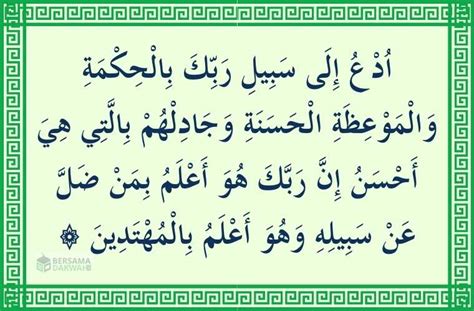 اُدْعُ إِلَى سَبِيلِ رَبِّكَ بِالْحِكْمَةِ
وَالْمَوْعِظَةِ الْحَسَنَةِ وَجَادِلْهُمْ بِالَّتِي هِيَ
أَحْسَنُ إِنَّ رَبَّكَ هُوَ أَعْلَمُ بِمَنْ ضَلَّ
عَنْ سَبِيلِهِ وَهُوَ أَعْلَمُ بِالْمُهْتَدِينَ ۞
BERSAMA
DAKWAH